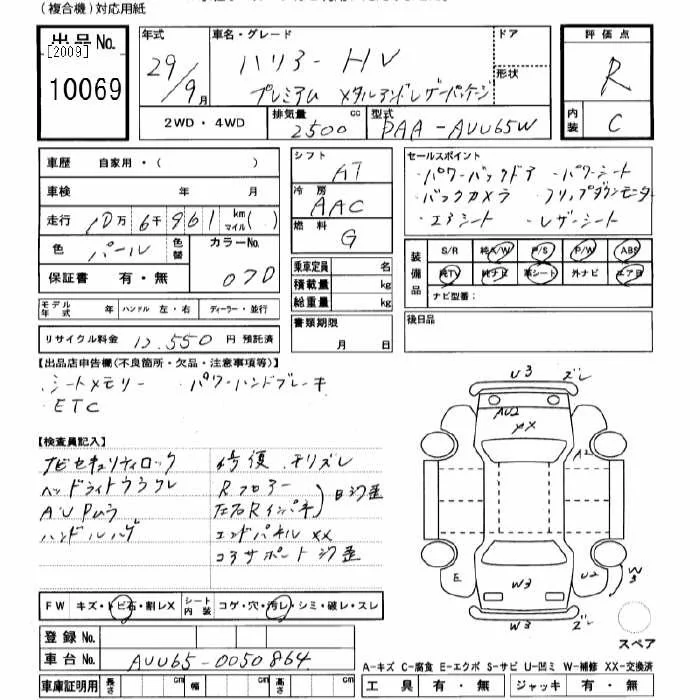 (複合機)対応用紙
出品No.
[2009]
10069
年式 29/9月
車名・グレード ハリアー HV
プレミアム メタルアンドレザーパッケージ
ドア
形状
評価点 R
内装 C
2WD・4WD
排気量 2500 cc
型式 DAA-AVU65W
車歴 自家用・( )
車検 年 月
走行 10万6千961 km マイル( )
色 パール 色替
カラーNo. 070
保証書 有・無
モデル年式 年 ハンドル 左・右 ディーラー・並行
リサイクル料金 12,550 円 預託済
シフト AT
冷房 AAC
燃料 G
乗車定員 名
積載量 kg
総重量 kg
書類期限 月 日
セールスポイント
・パワーバックドア ・パワーシート
・バックカメラ ・フリップダウンモニター
・エアシート ・レザーシート
装備品
S/R 純A/W P/S P/W ABS
純TV 純ナビ 革シート 外ナビ エアB
ナビ型番:
後日品
【出品店申告欄(不良箇所・欠品・注意事項等)】
・シートメモリー ・パワーハンドブレーキ
・ETC
【検査員記入】
ナビセキュリティロック
ヘッドライトウラクレ
AU Pムラ
ハンドルハゲ
修復
Rフロアー
左右Rインパネ
エンドパネルXX
コアサポート 歪
FW キズ・トビ石・割レX
シート内装 コゲ・穴・汚レ・シミ・破レ・スレ
登録No.
車台No. AVU65-0050864
車庫証明用 長さ cm 幅 cm 高さ cm
U3 ズレ
AU2
XX
A2
E
W3
U2
W3
W3 ズレ
スペア
A-キズ C-腐食 E-エクボ S-サビ U-凹ミ W-補修 XX-交換済
工具 有・無 ジャッキ 有・無